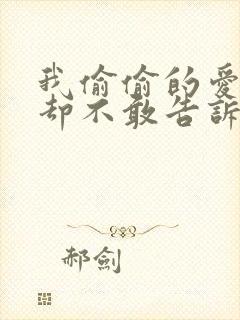 我偷偷的愛
却不敢告訴
郝劍